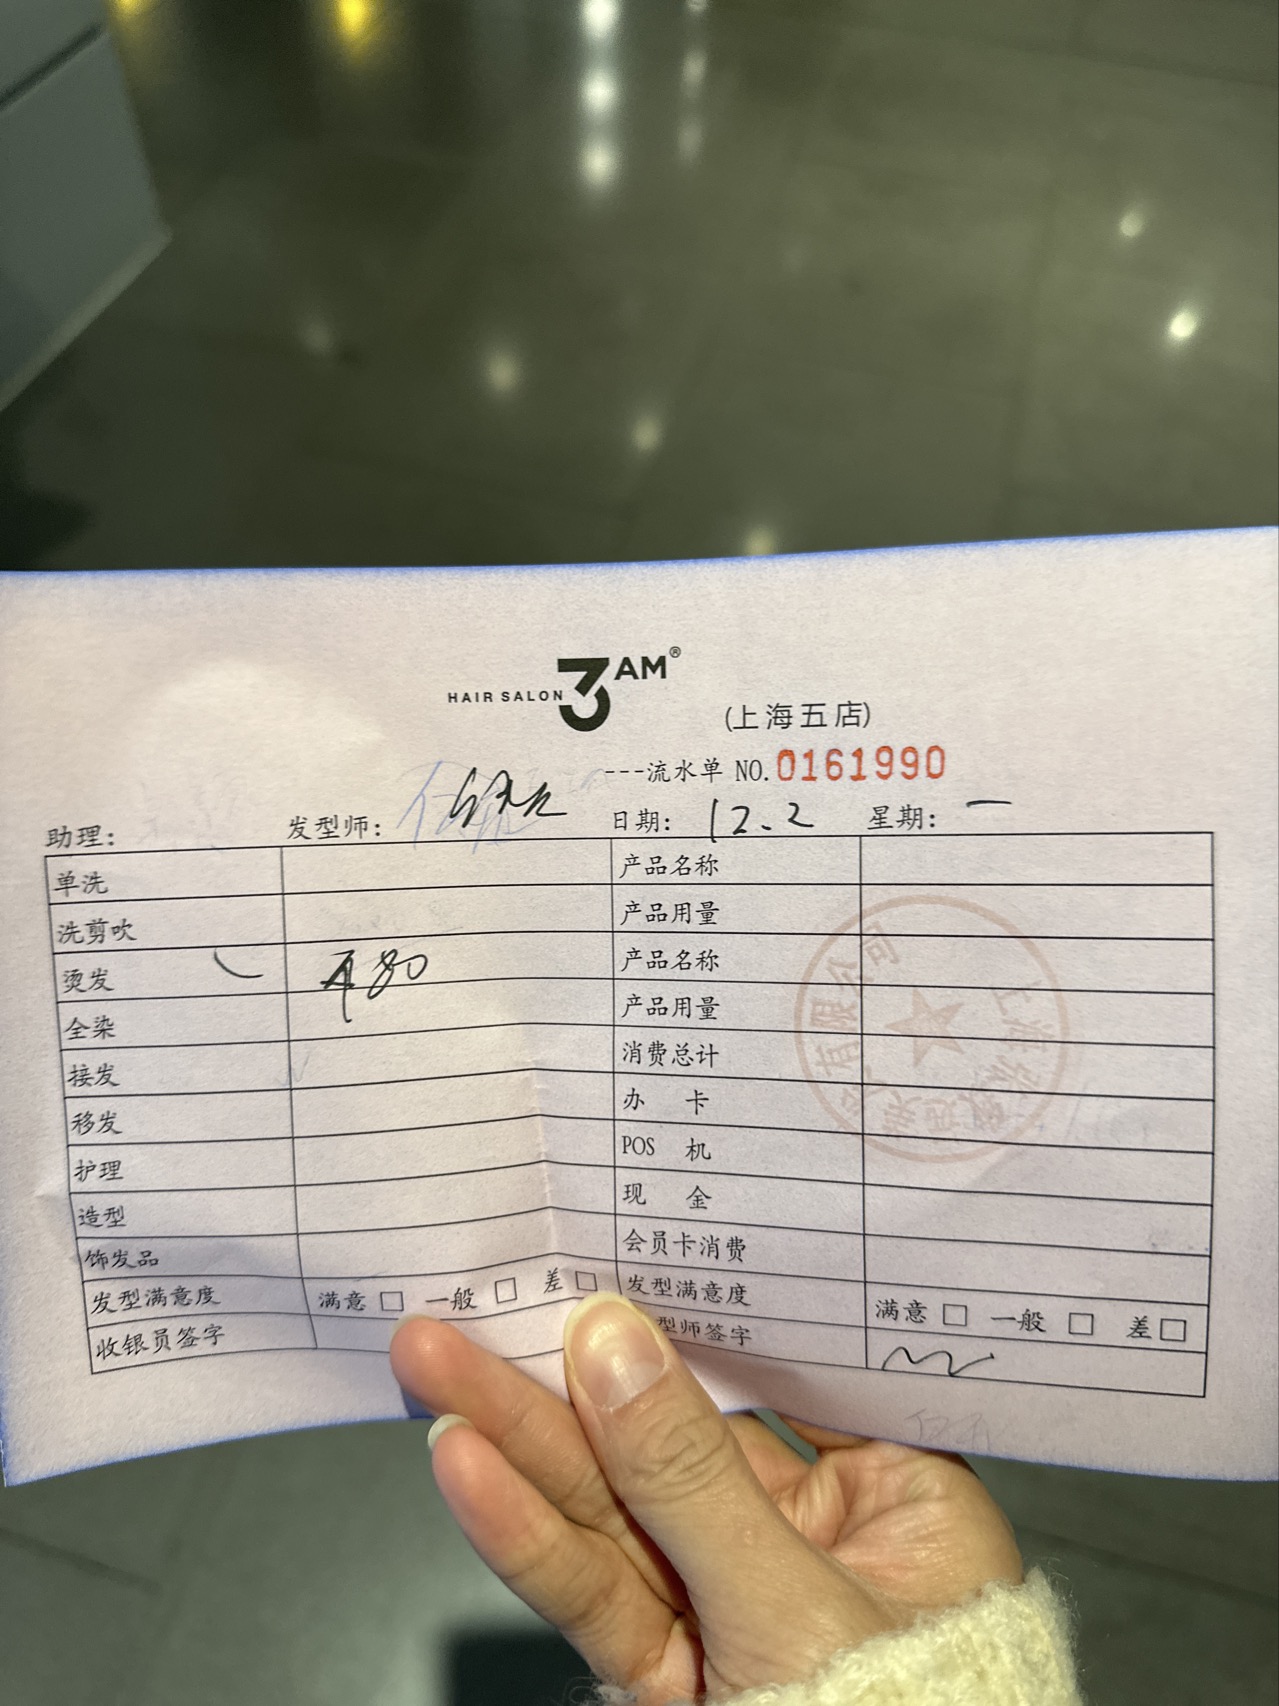 HAIR SALON 3AM®
(上海五店)
---流水单 NO.0161990
助理: 发型师: 日期: 12.2 星期: 一
单洗 产品名称
洗剪吹 产品用量
烫发 480 产品名称
全染 产品用量
接发 消费总计
移发 办 卡
护理 POS 机
造型 现 金
饰发品 会员卡消费
发型满意度 满意 □ 一般 □ 差 □ 发型满意度 满意 □ 一般 □ 差 □
收银员签字 型师签字